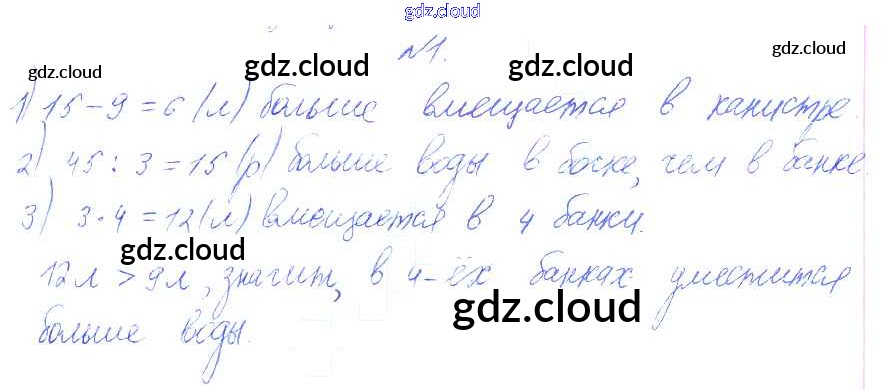 gdz.cloud
№1.
gdz.cloud gdz.cloud gdz.cloud
1) 15 - 9 = 6 (л) больше вмещается в канистре.
2) 45 : 3 = 15 (р) больше воды в бочке, чем в банке.
3) 3 · 4 = 12 (л) вмещается в 4 банки.
gdz.cloud
12л > 9л, значит, в 4-ёх банках уместится
gdz.cloud
больше воды.